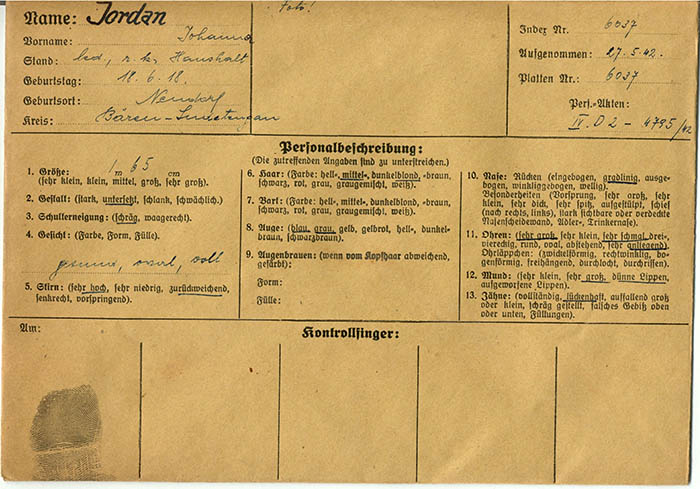 Name: Jordan
Foto!
Vorname: Johanna
Stand: led., r.k., Haushalt
Geburtstag: 18.6.18.
Geburtsort: Neudorf
Kreis: Bärn-Sudetengau
Index Nr. 6037
Aufgenommen: 27.5.42.
Platten Nr.: 6037
Pers.-Akten:
IV D 2 - 4795/42
Personalbeschreibung:
(Die zutreffenden Angaben sind zu unterstreichen.)
1. Größe: 1 m 65 cm
(sehr klein, klein, mittel, groß, sehr groß).
2. Gestalt: (stark, untersetzt, schlank, schwächlich.)
3. Schulterneigung: (schräg, waagerecht.)
4. Gesicht: (Farbe, Form, Fülle).
gesund, oval, voll
5. Stirn: (sehr hoch, sehr niedrig, zurückweichend,
senkrecht, vorspringend).
6. Haar: (Farbe: hell-, mittel-, dunkelblond, -braun,
schwarz, rot, grau, graugemischt, weiß).
7. Bart: (Farbe: hell-, mittel-, dunkelblond, -braun,
schwarz, rot, grau, graugemischt, weiß).
8. Auge: (blau, grau, gelb, gelbrot, hell-, dunkel-
braun, schwarzbraun).
9. Augenbrauen: (wenn vom Kopfhaar abweichend,
gefärbt):
Form:
Fülle:
10. Nase: Rücken (eingebogen, gradlinig, ausge-
bogen, winkliggebogen, wellig).
Besonderheiten (Vorsprung, sehr groß, sehr
klein, sehr dick, sehr spitz, aufgestülpt, schief
(nach rechts, links), stark sichtbare oder verdeckte
Nasenscheidewand, Adler-, Trinkernase).
11. Ohren: (sehr groß, sehr klein, sehr schmal, drei-,
viereckig, rund, oval, abstehend, sehr anliegend).
Ohrläppchen: (zwickelförmig, rechtwinklig, bo-
genförmig, freihängend, durchlocht, durchrissen).
12. Mund: (sehr klein, sehr groß, dünne Lippen,
aufgeworfene Lippen).
13. Zähne: (vollständig, lückenhaft, auffallend groß
oder klein, schräg gestellt, falsches Gebiß oben
oder unten, Füllungen).
Am:
Kontrollfinger: